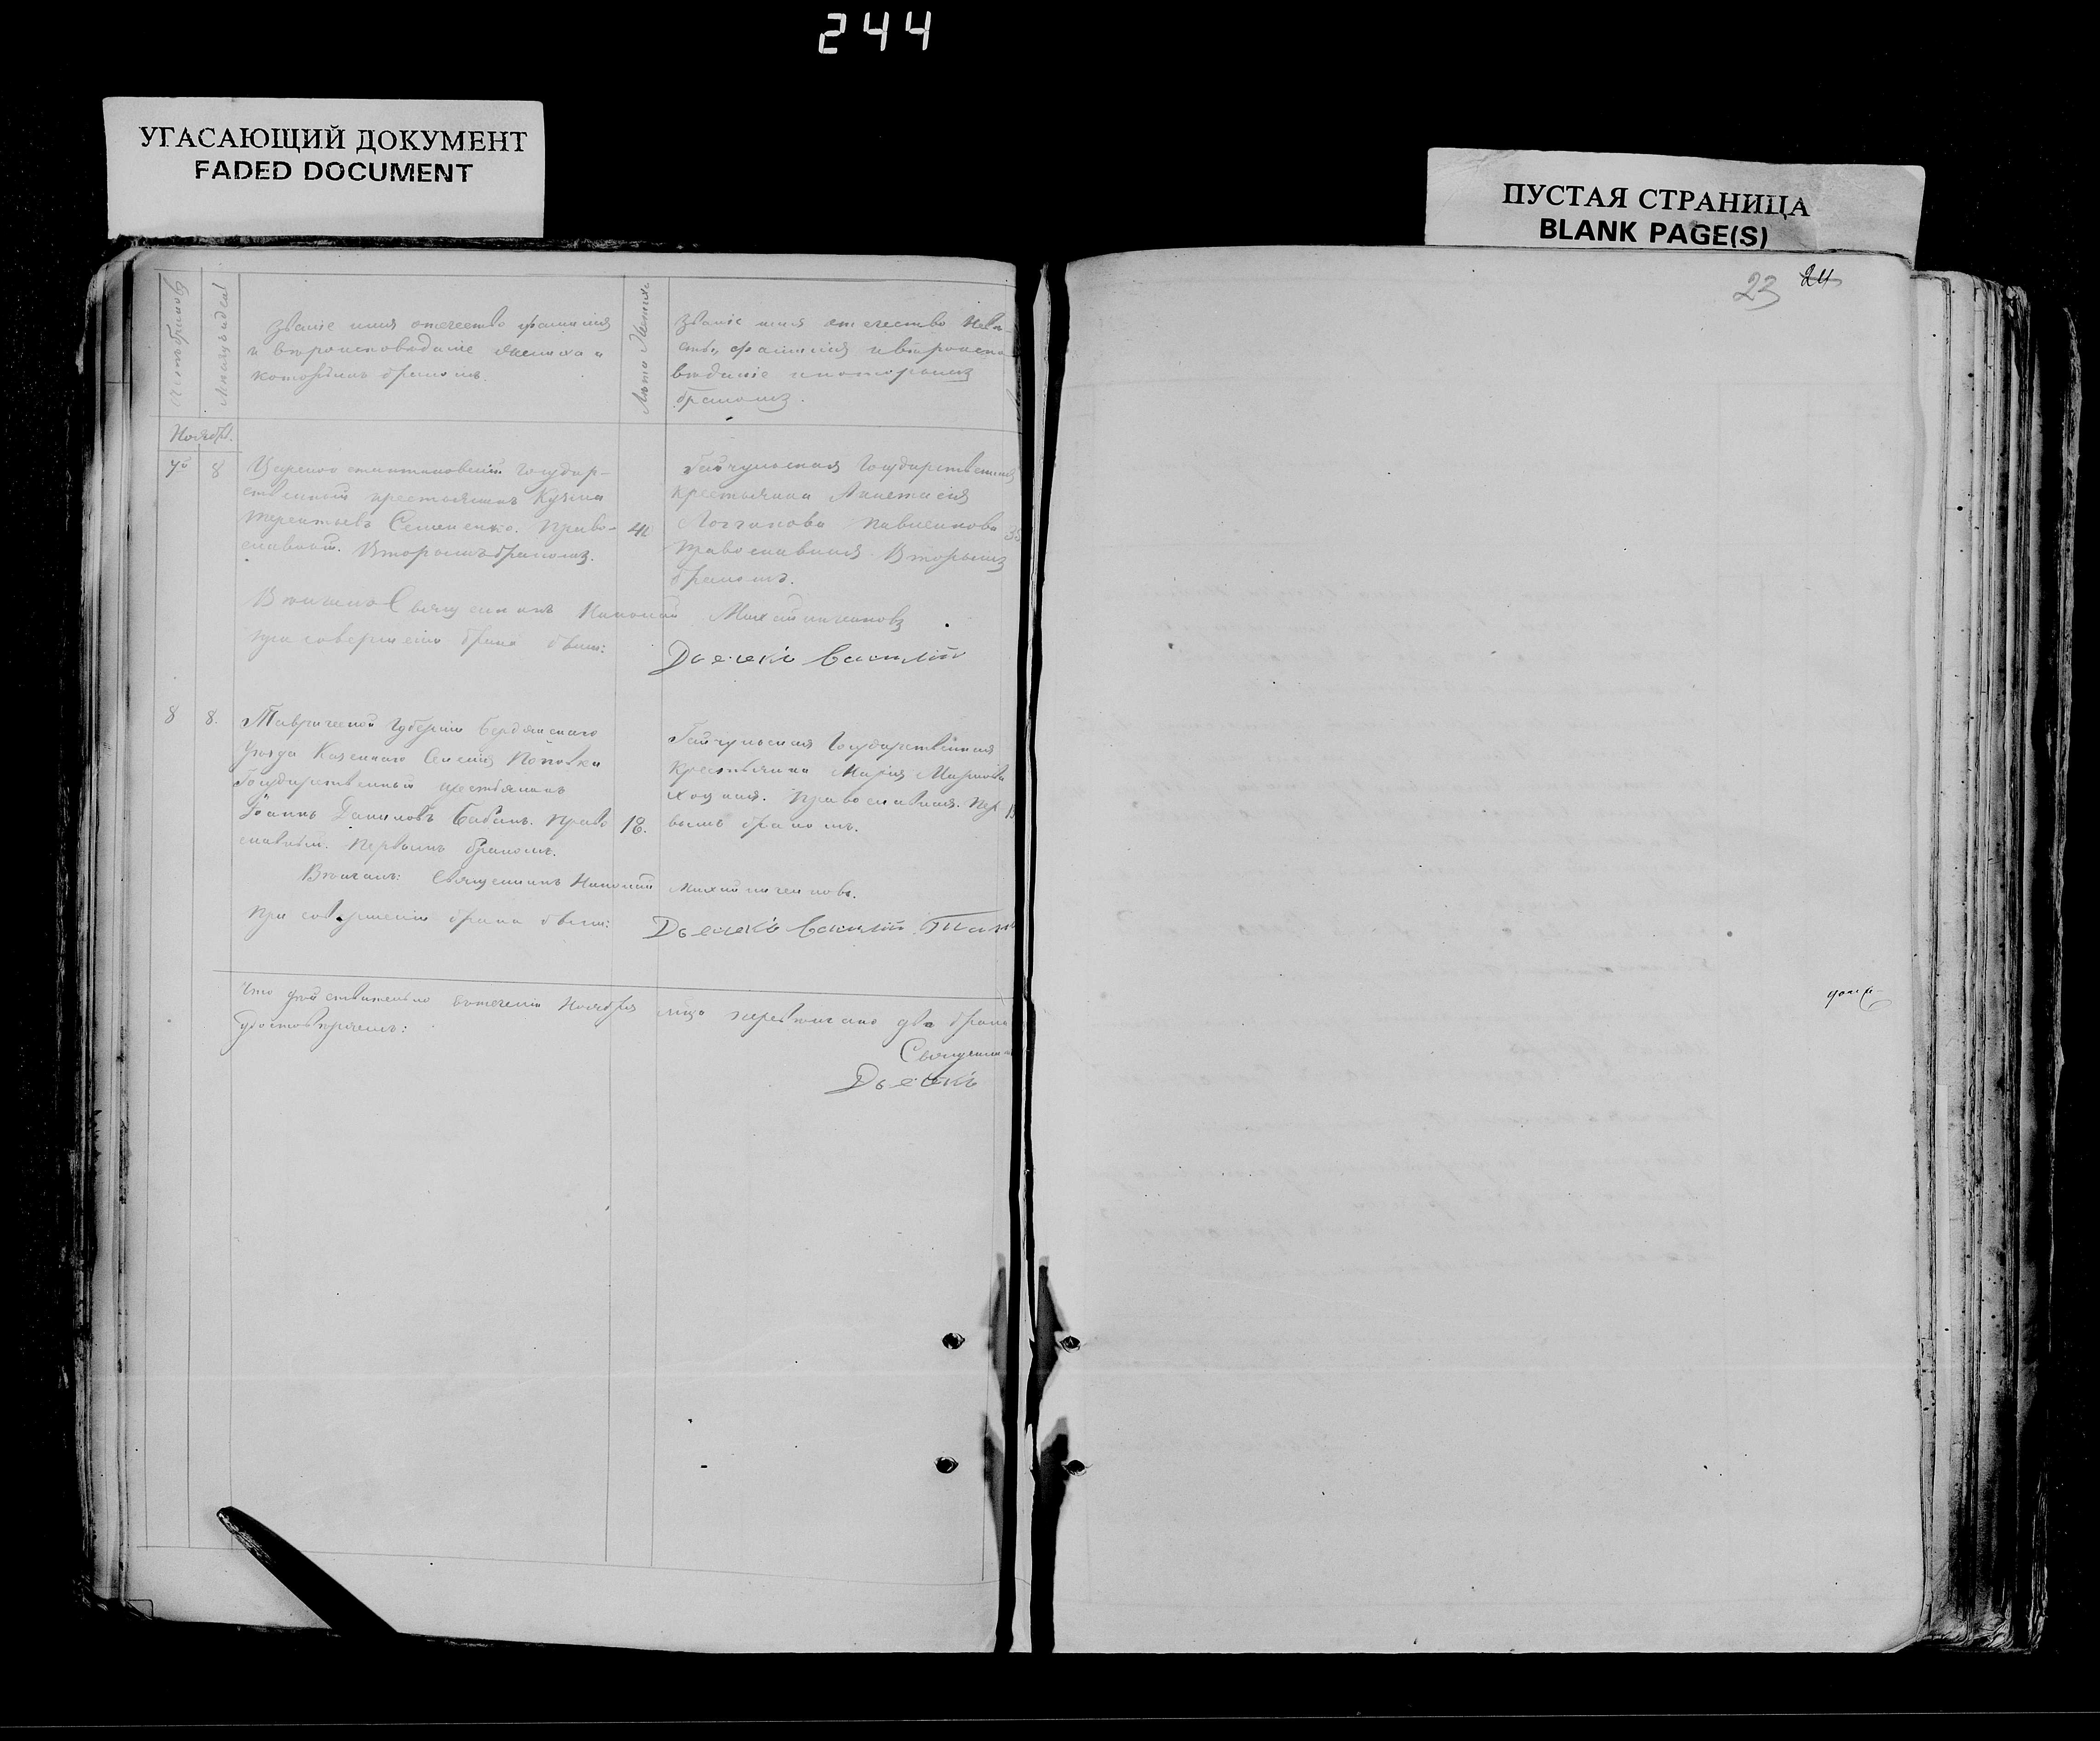 244
УГАСАЮЩИЙ ДОКУМЕНТ
FADED DOCUMENT
ПУСТАЯ СТРАНИЦА
BLANK PAGE(S)
23 24
Званіе имя отечество фамилія
и вѣроисповѣданіе жениха и
которымъ бракомъ.
Лета Жениха
Званіе имя отечество Невѣ-
сты, фамилія и вѣроиспо
вѣданіе и которымъ
бракомъ.
Ноябрь.
7й 8
Государ-
ственный крестьянинъ Кузьма
Терентьевъ Семененко. Право-
славный. Вторымъ бракомъ.
Гайчульская Государственная
крестьянка Анастасія
Павленкова
Православная Вторымъ
бракомъ.
Вѣнчалъ Священникъ Николай
при совершеніи брака были:
Дьячекъ Василій
8 8.
Таврической Губерніи Бердянскаго
Уѣзда Казеннаго Селенія Поповки
Государственный крестьянинъ
Іоаннъ Даниловъ Бабакъ. Право
славный. Первымъ бракомъ.
18.
Гайчульская Государственная
крестьянка Марія Маркова
Православная. Пер-
вымъ бракомъ.
Вѣнчалъ: Священникъ Николай
При совершеніи брака были:
Дьячекъ Василій
Что дѣйствительно въ теченіи Ноября мѣца перевѣнчано два брака
удостовѣряемъ:
Священникъ
Дьячекъ